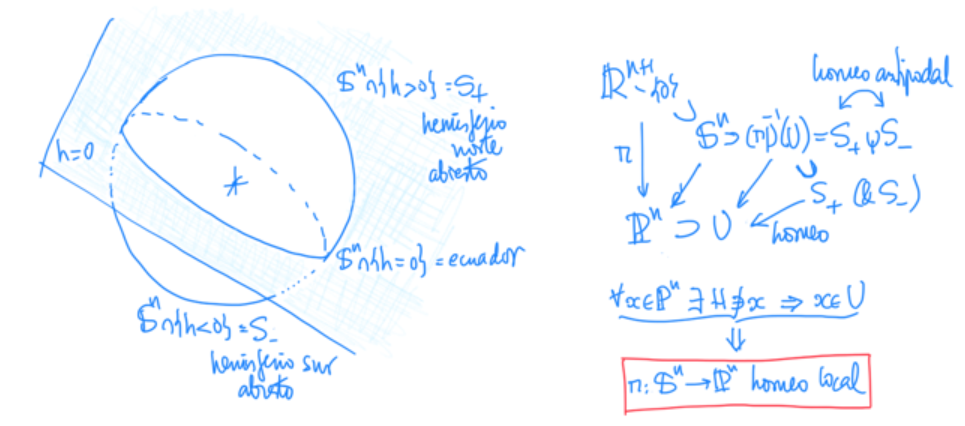 h=0
𝕊ⁿ∩{h>0} = S₊
hemisferio
norte
abierto
𝕊ⁿ∩{h=0} = ecuador
𝕊ⁿ∩{h<0} = S₋
hemisferio sur
abierto
ℝⁿ⁺¹-{0}
homeo antipodal
π
𝕊ⁿ ⊃ (π|)⁻¹(U) = S₊ ⊎ S₋
∪
S₊ (& S₋)
ℙⁿ ⊃ U
homeo
∀x∈ℙⁿ ∃ H∌x ⇒ x∈U
⇓
π: 𝕊ⁿ → ℙⁿ homeo local